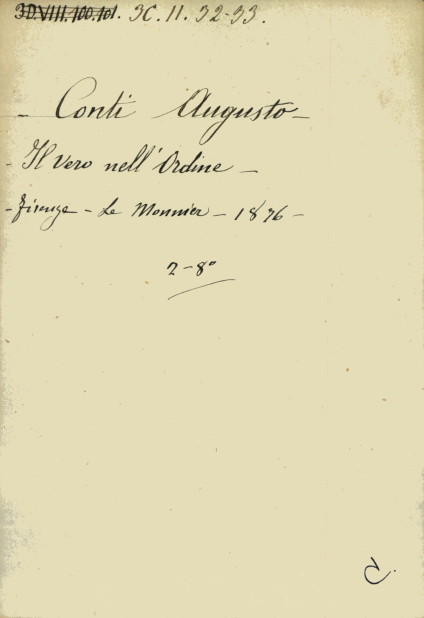 3D.VIII.100.101. 3C.11.32-33.
- Conti Augusto -
- Il Vero nell'Ordine -
- Firenze - Le Monnier - 1876 -
2-8°
C.